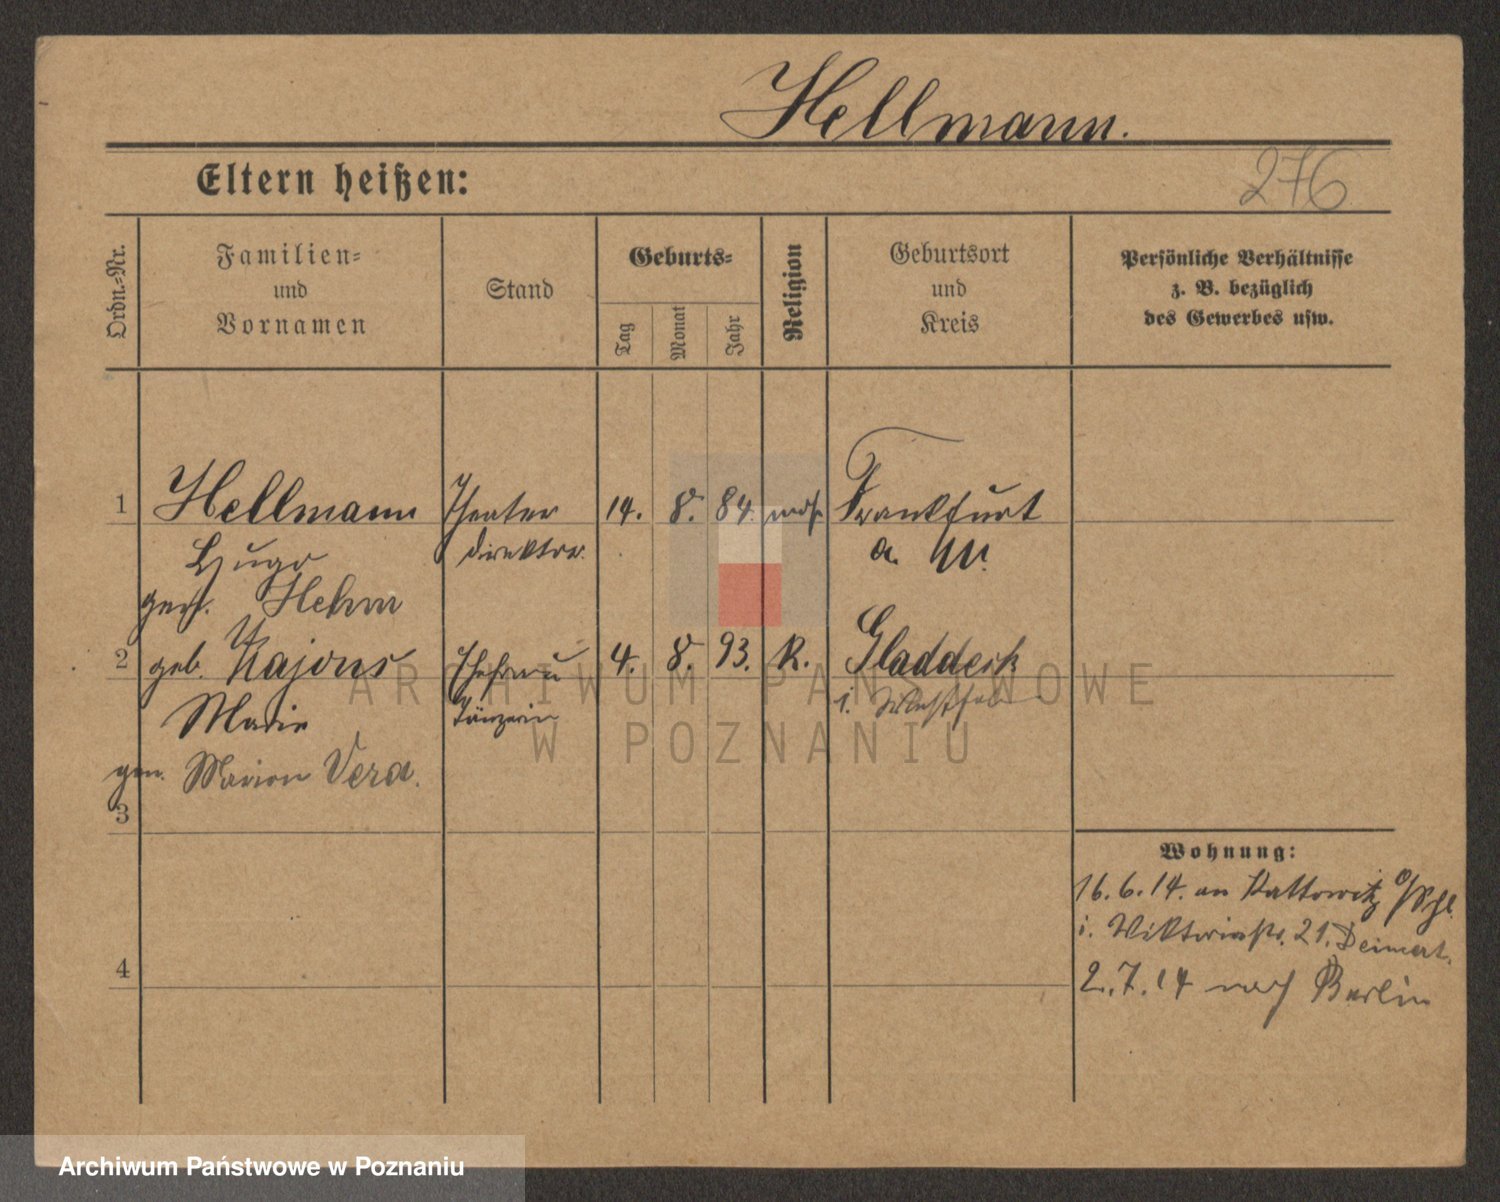 Hellmann.
276
Eltern heißen:
Ordn.-Nr.
Familien-
und
Vornamen
Stand
Geburts-
Tag
Monat
Jahr
Religion
Geburtsort
und
Kreis
Persönliche Verhältnisse
z. B. bezüglich
des Gewerbes usw.
1 Hellmann Theater 14. 8. 84. mos. Frankfurt
Hugo direktor. a. M.
gesch.
2 geb. Kajons Ehefrau 4. 8. 93. K. Gladdeck
Marie Tänzerin i. Westfalen
gen. Marion Vera.
3
Wohnung:
16. 6. 14. an Kattowitz O/Schl.
i. Viktoriastr. 21. Deimert.
4
2. 7. 14 nach Berlin
ARCHIWUM PAŃSTWOWE
W POZNANIU
Archiwum Państwowe w Poznaniu